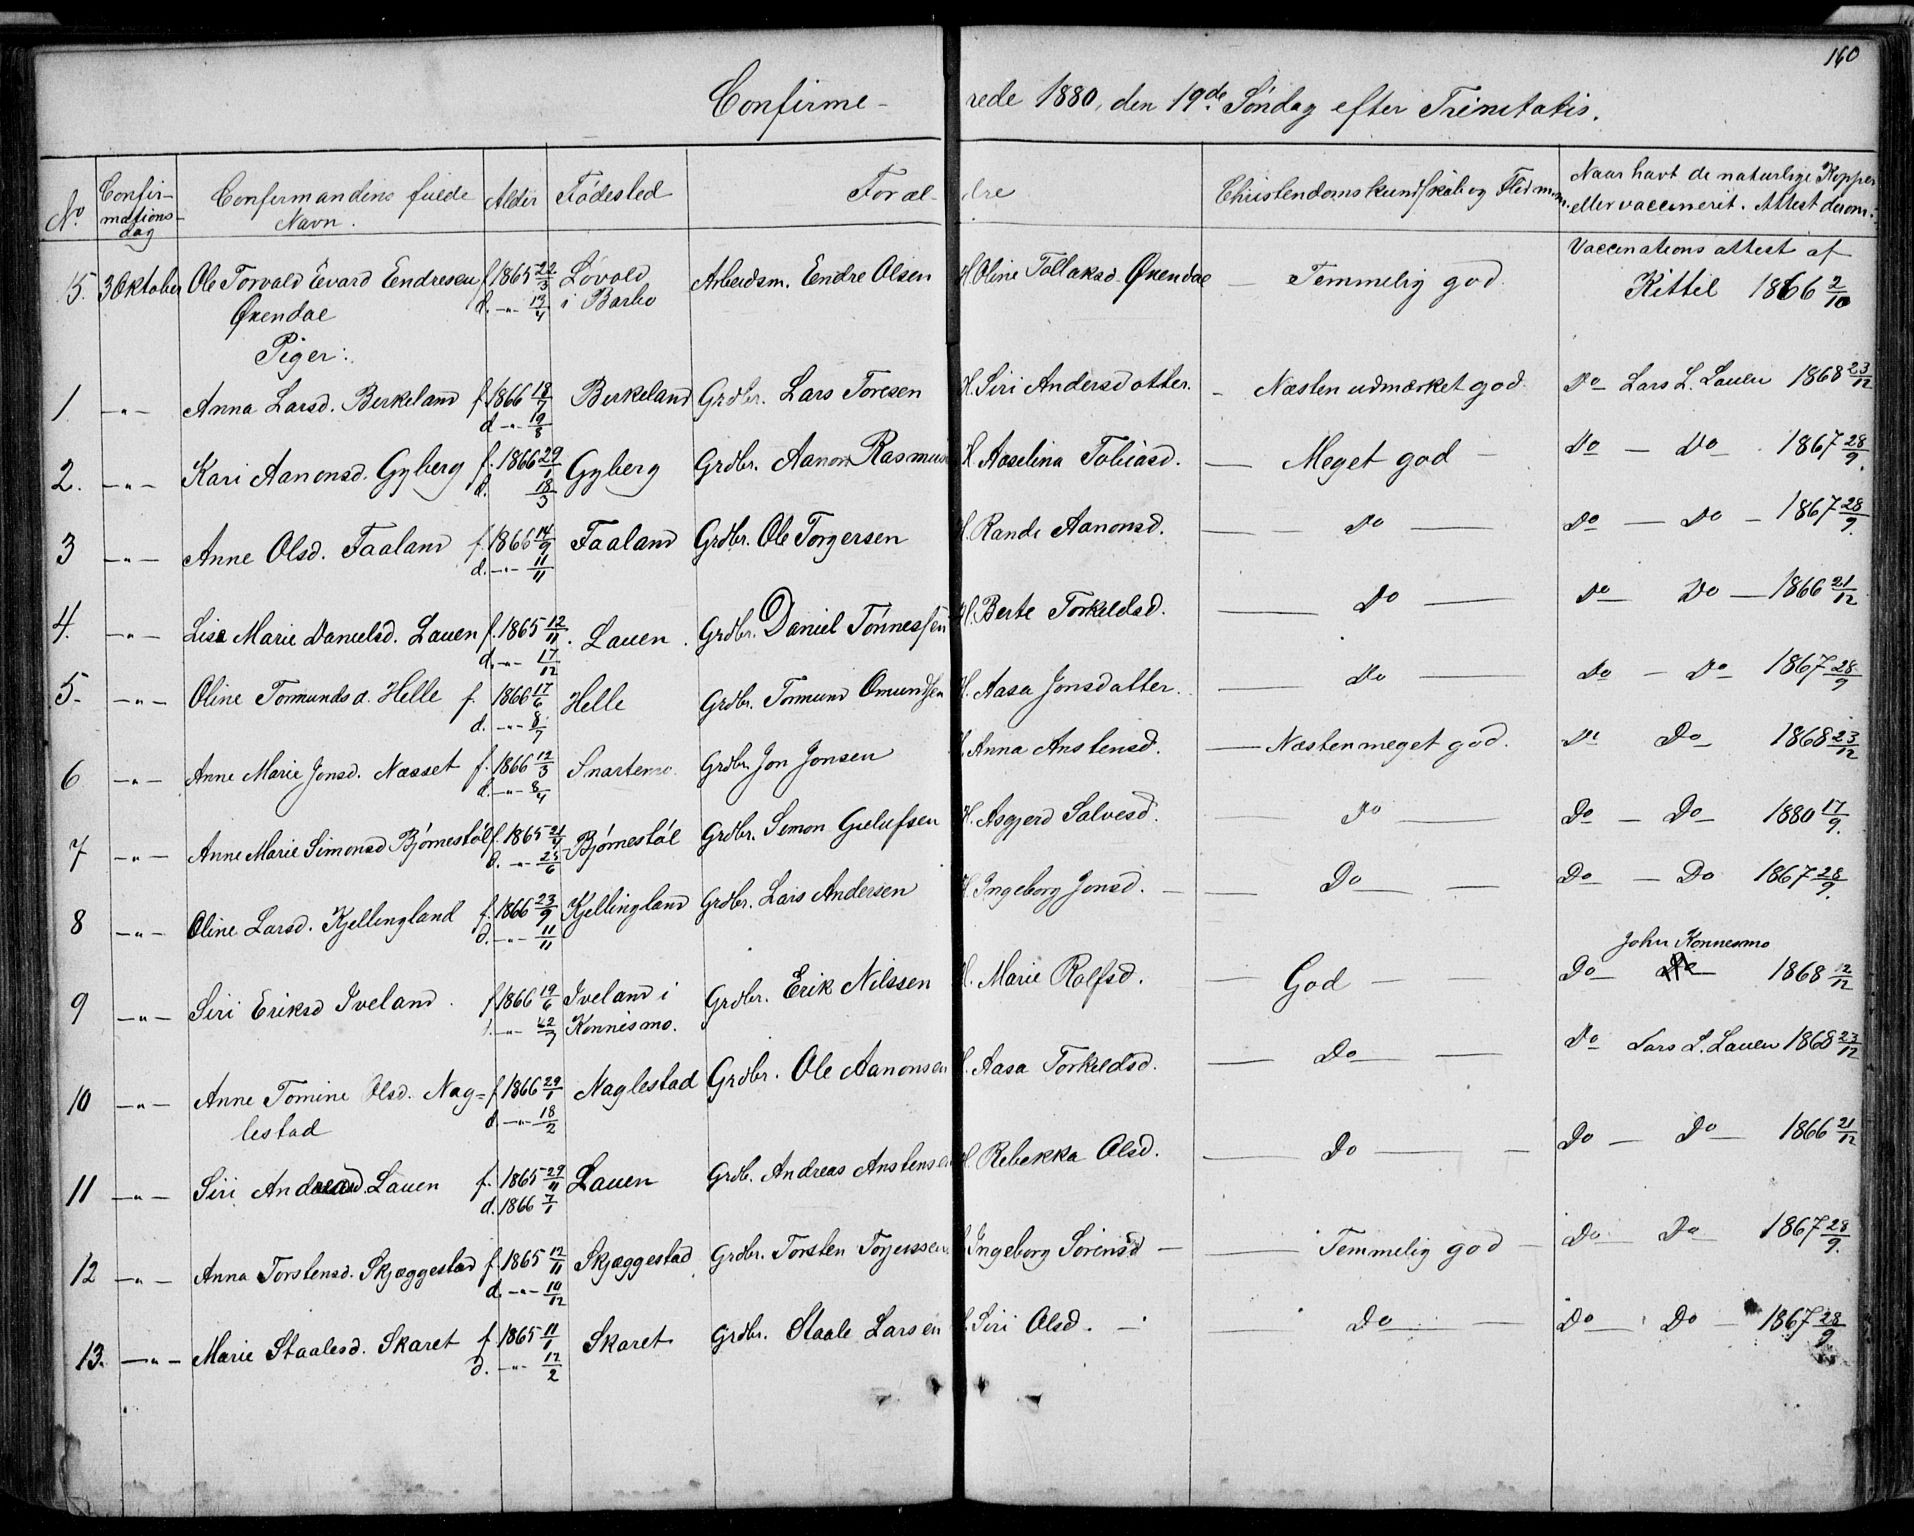 160
Confirme- rede 1880, den 19de Søndag efter Trinitatis.
No Confir-mations-dag Confirmandens fulde Navn. Alder Fødested Foræl- dre Christendomskundskab og Flid m.m. Naar havt de naturlige Kopper eller vaccinerit. Attest derom.
Vaccinations attest af
5. 3 Oktober Ole Torvald Evard Endresen f. 1865 22/3 Løvold Arbeidsm. Endre Olsen H. Oline Tollaksd. Øxendal — Temmelig god Kittil 1866 2/10
Øxendal d. -"- 13/4 i Barbo
Piger:
1 -"- Anna Larsd. Berkeland f. 1866 18/7 Berkeland Grdbr. Lars Toresen H. Siri Andersdatter. - Næsten udmærket god Do Lars L. Lauen 1868 23/12
d -"- 19/8
2. -"- Kari Aanonsd. Gyberg f. 1866 29/1 Gyberg Grdbr. Aanon H. Aaselina Tobiasd. — Meget god - Do — Do 1867 28/9.
d. 18/3
3 -"- Anne Olsd. Faaland f. 1866 14/9 Faaland Grdbr. Ole Torgersen H. Rande Aanonsd. — Do — Do — Do — 1867 28/9.
d. -"- 11/11
4. -"- Lise Marie Danielsd. Lauen f. 1865 12/11 Lauen. Grdbr. Daniel Tønnessen H. Berte Torkeldsd. — Do — Do Do — 1866 21/12
d. -"- 17/12
5. -"- Oline Tormundsd. Helle f. 1866 17/6 Helle Grdbr. Tormund Omundsen H. Aasa Jonsdatter. — Do — Do — Do 1867 28/9
d. -"- 8/7
6 -"- Anne Marie Jonsd. Næsset f. 1866 12/3 Snartemo Grdbr. Jon Jonsen H. Anna Anstensd. — Næsten meget god. Do Do 1868 23/12
d. -"- 8/4
7 -"- Anne Marie Simonsd Bjørnestøl f. 1865 21/4 Bjørnestøl Grdbr. Simon Gulufsen H. Asgjerd Salvesd. — Do — Do — Do 1880 17/9.
d. -"- 25/6
8 -"- Oline Larsd. Kjellingland f. 1866 23/9 Kjellingland Grdbr. Lars Andersen H. Ingeborg Jonsd. — Do — Do — Do 1867 28/9.
d. -"- 11/11
John Konnesmo
9 -"- Siri Eriksd Iveland. f. 1866 19/6 Iveland i Grdbr. Erik Nilssen H. Marie Rolfsd. — God — Do 1868 12/12
-"- 22/7 Konnismo.
10 -"- Anne Tomine Olsd. Nag= f. 1866 29/1 Naglestad Grdbr. Ole Aanonsen H. Aasa Torkeldsd. — Do — Do Lars L. Lauen 1868 23/12
lestad d. -"- 18/2
11 -"- Siri Andreasd. Lauen f. 1865 29/11 Lauen Grdb. Andreas Anstensen H. Rebekka Olsd. — Do — Do — Do 1866 21/12
d. 1866 7/1
12 -"- Anna Torstensd. Skjæggestad f. 1865 12/11 Skjæggestad Grdbr. Torsten Torjerssen H. Ingeborg Sørensd — Temmelig god — Do — Do 1867 28/9.
d. -"- 10/12
13. -"- Marie Staalesd. Skaret f. 1865 11/1 Skaret Grdbr. Staale Larsen H. Siri Olsd. — Do — Do — Do — 1867 28/9
d. -"- 12/2